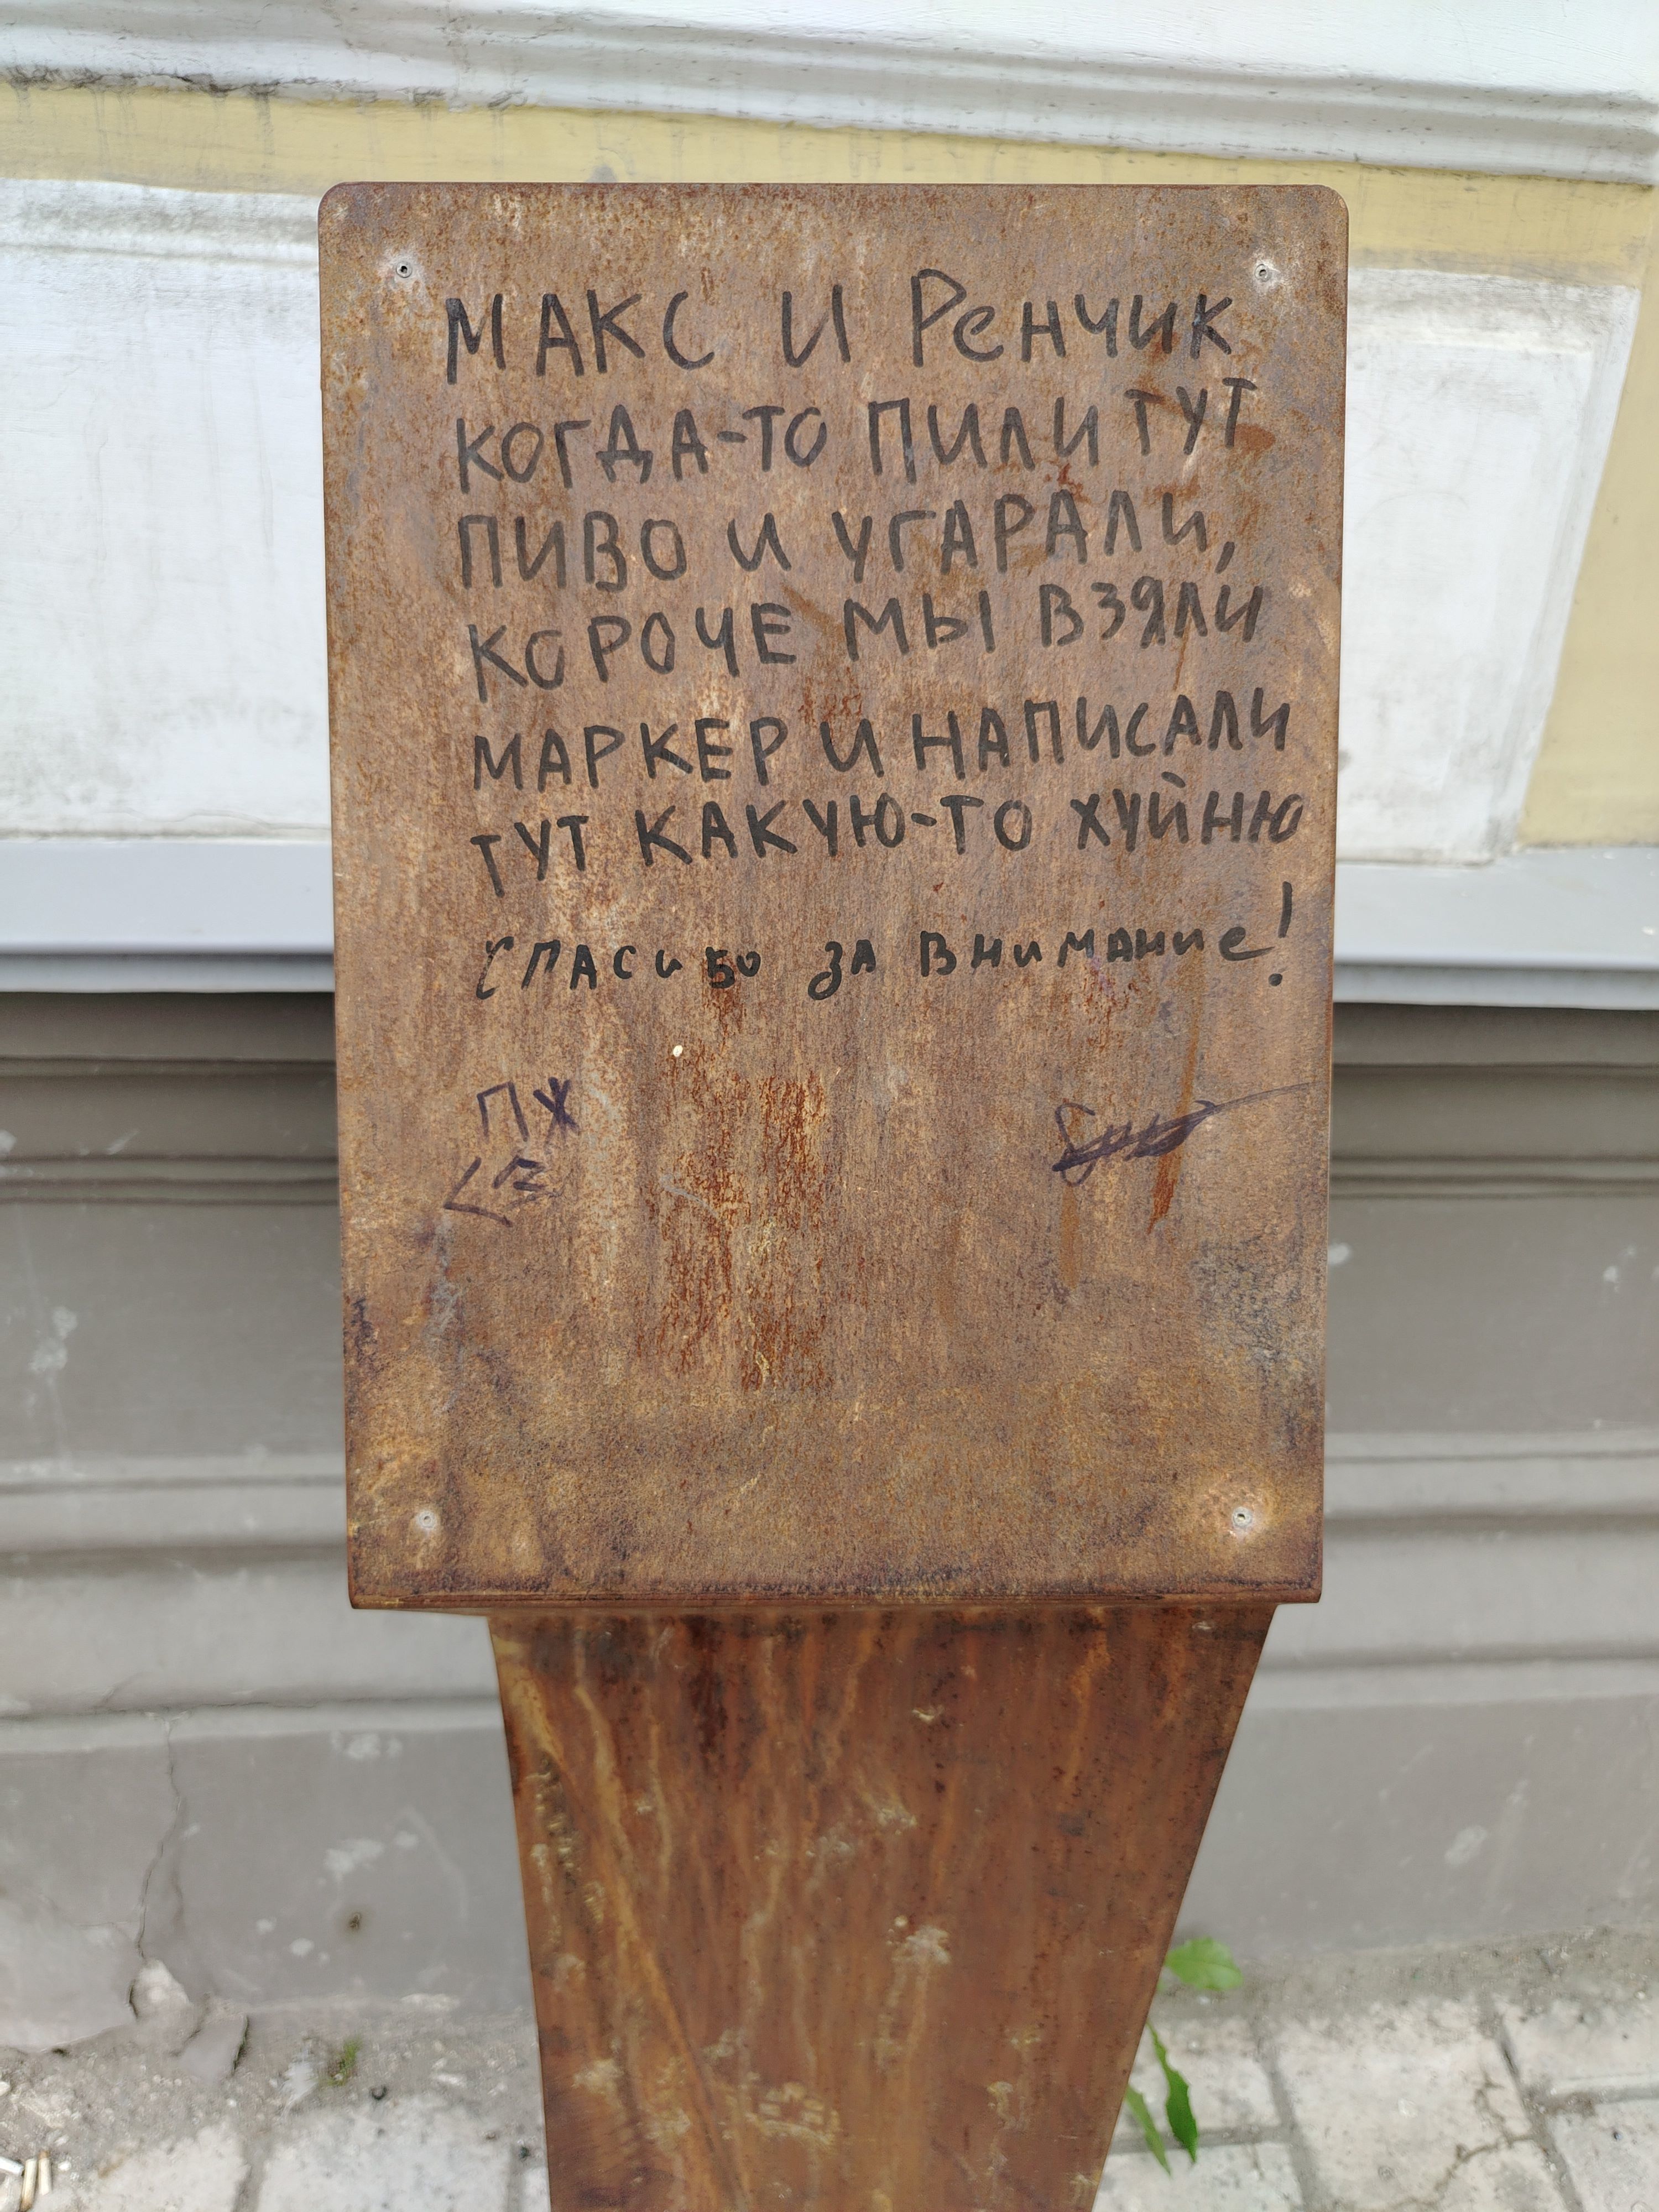 МАКС И РЕНЧИК
КОГДА-ТО ПИЛИ ТУТ
ПИВО И УГАРАЛИ,
КОРОЧЕ МЫ ВЗЯЛИ
МАРКЕР И НАПИСАЛИ
ТУТ КАКУЮ-ТО ХУЙНЮ
СПАСИБО ЗА ВНИМАНИЕ!
ПЖ